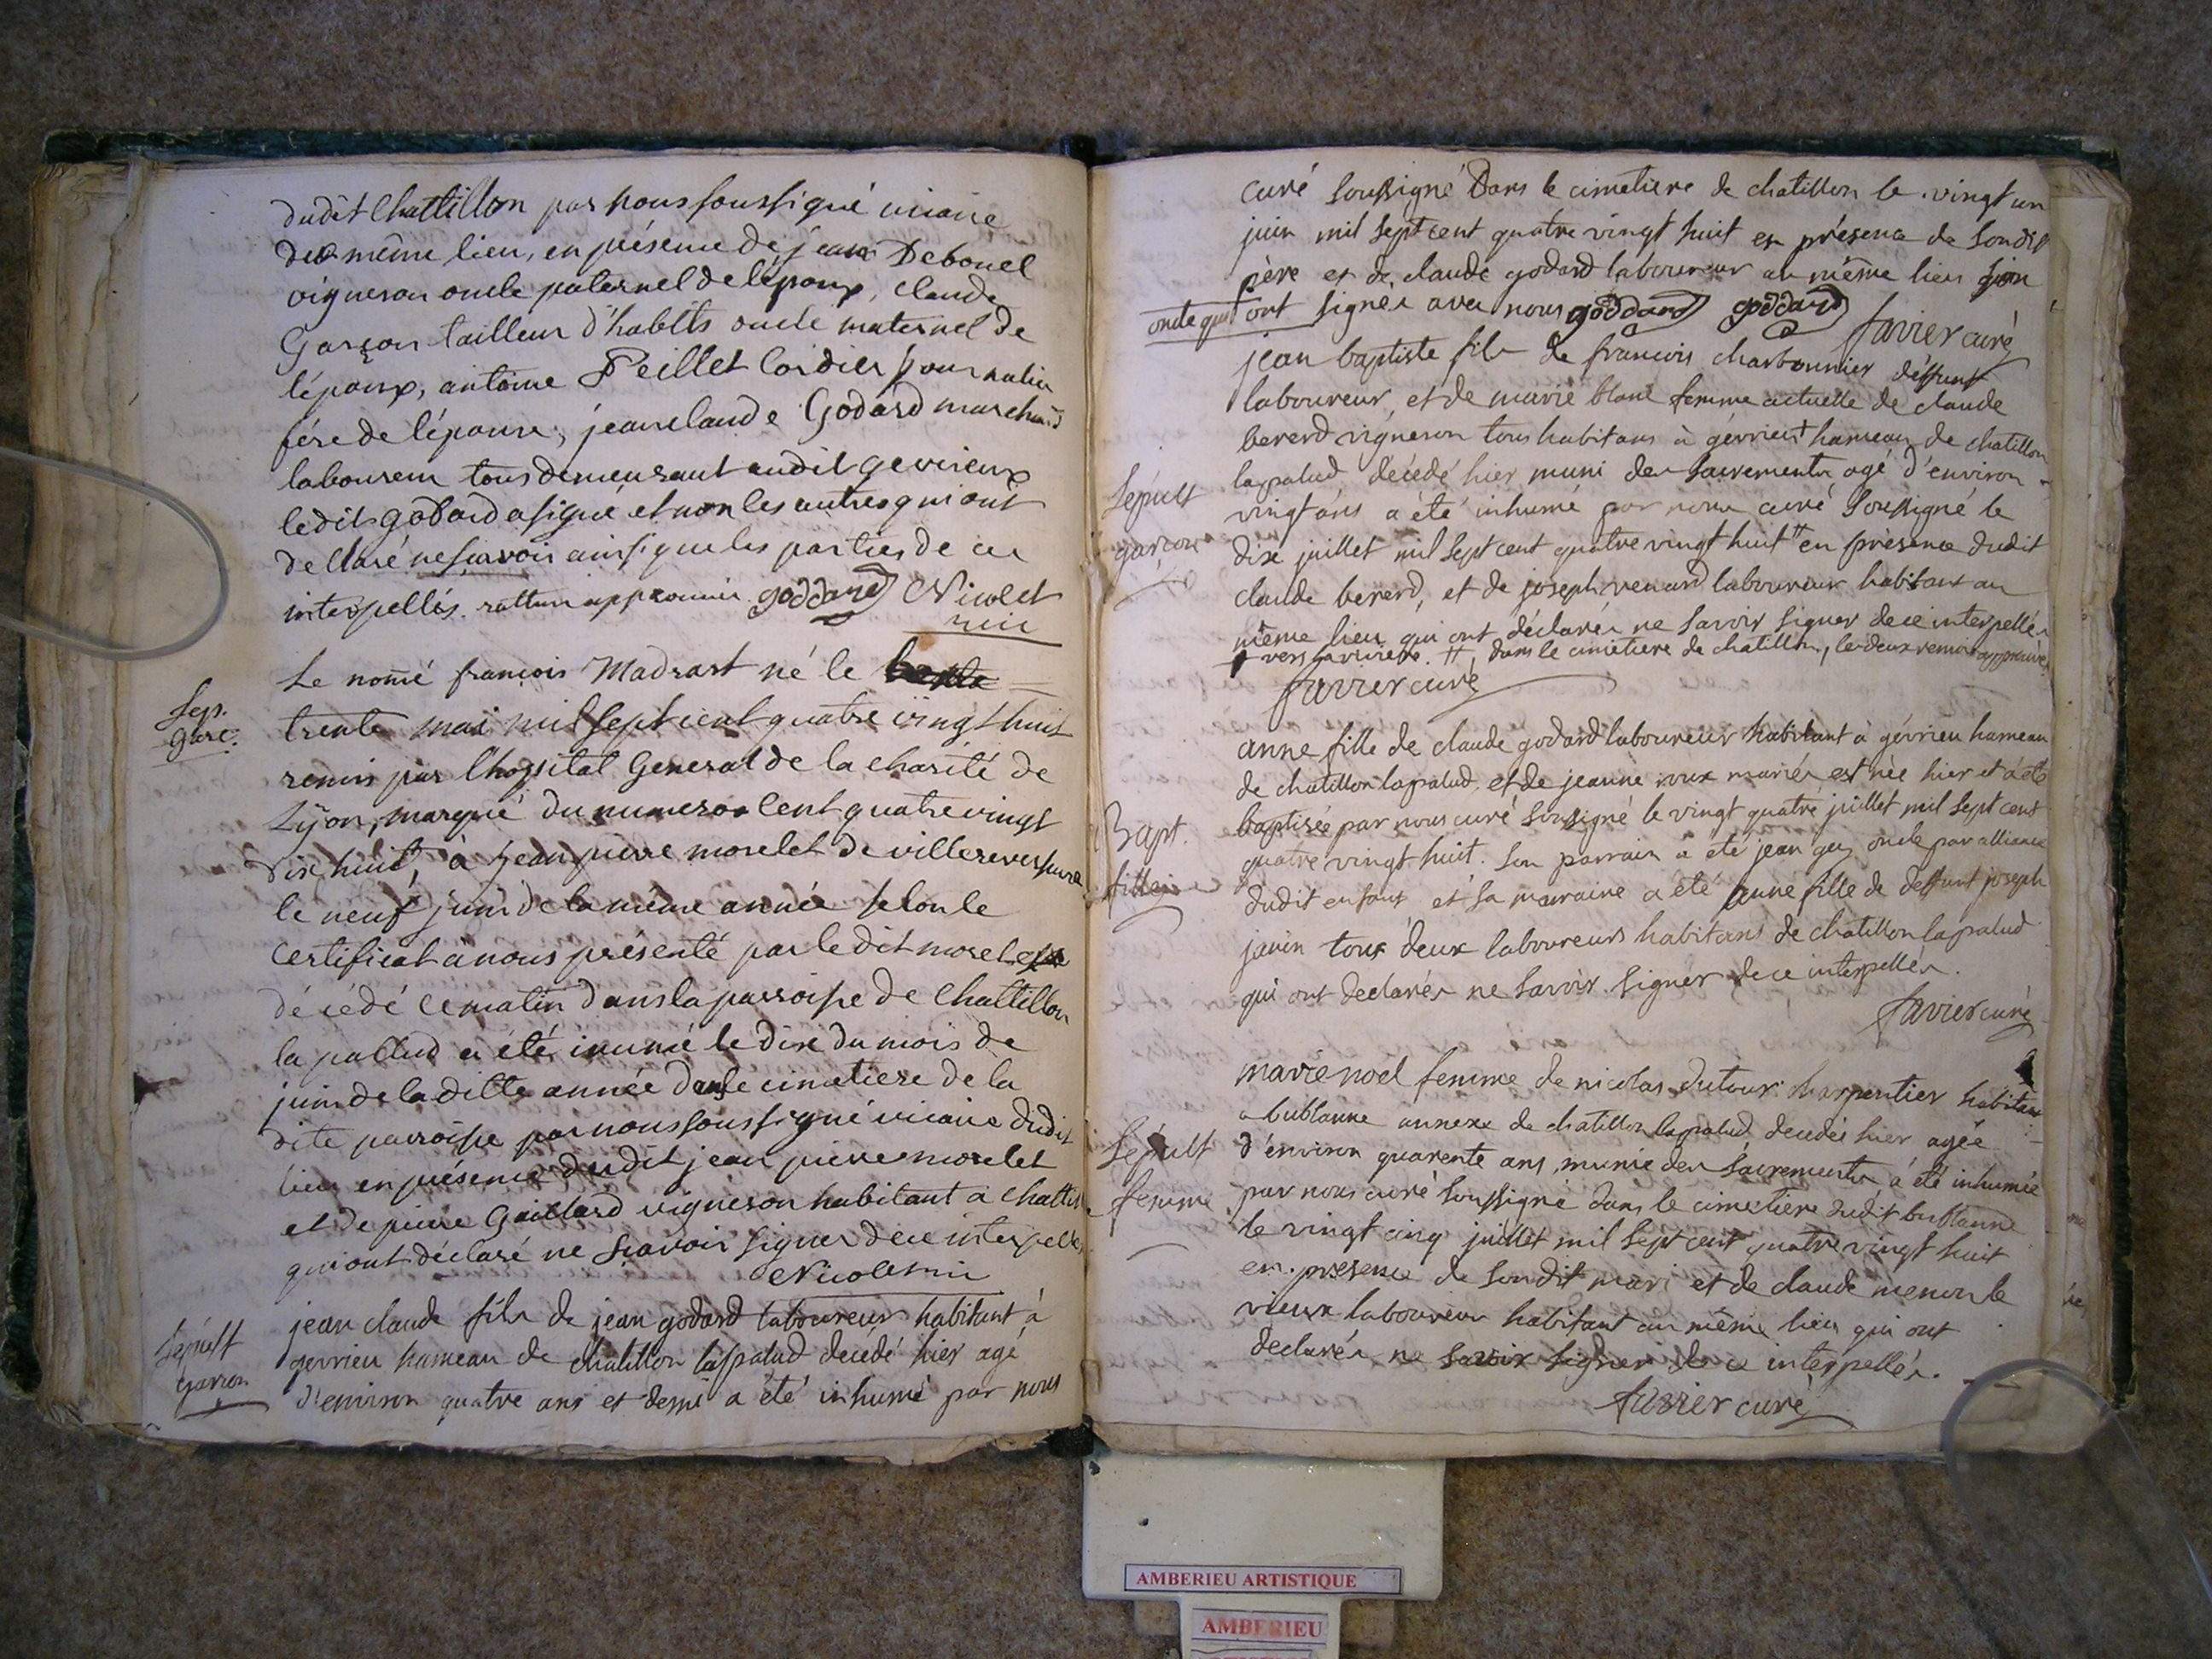 dudit Chattillon par nous soussigné vicaire
du même lieu, en présence de jean Debouel
vigneron oncle paternel de l'époux, claude
Garçon tailleur d'habits oncle maternel de
l'époux, antoine Peillet Cordier journalier
frère de l'épouse, jean claude Godard marchand
laboureur tous demeurant audit gevrieux
ledit godard a signé et non les autres qui ont
dellaré ne sçavoir ainsi que les parties de ce
interpellés. goddard Nicolet
vic
Sep.
garç.
Le nomé françois Madrast né le
trente mai mil sept cent quatre vingt huit
remis par l'hopital General de la charité de
Lÿon, marqué du numero Cent quatre vingt
dix huit, à jean pierre morelet de villereversure
le neuf juin de la même année selon le
certificat à nous présenté par le dit morelet
décédé ce matin dans la parroisse de Chattillon
la pallud a été inumé le dix du mois de
juin de la ditte année dans le cimetiere de la
dite parroisse par nous soussigné vicaire dudit
lieu en présence dudit jean pierre morelet
et de pierre Gaillard vigneron habitant à Chatti
qui ont déclaré ne sçavoir signer de ce interpellés
Nicolet vic
Sépult
garçon
jean claude fils de jean godard laboureur habitant à
gevrieu hameau de chatillon lapalud decédé hier agé
d'environ quatre ans et demi a été inhumé par nous
curé soussigné Dans le cimetiere de chatillon le vingt un
juin mil sept cent quatre vingt huit en présence de sondit
père et de claude godard laboureur au même lieu son
oncle qui ont signés avec nous goddard goddard
favier curé
Sépult
garçon
jean baptiste fils de francois charbonnier déffunt
laboureur, et de marie blanc femme actuelle de claude
bererd vigneron tous habitans à gévrieu + hameau de chatillon
lapalud décédé hier muni des sacrements agé d'environ
vingt ans a été inhumé par nous curé soussigné le
dix juillet mil sept cent quatre vingt huit # en présence dudit
claude bererd, et de joseph renard laboureur habitant au
même lieu qui ont déclarés ne savoir signer de ce interpellés
# dans le cimetiere de chatillon, les deux renvois approuvés
favier curé
Bapt.
fille
anne fille de claude godard laboureur habitant à gévrieu hameau
de chatillon lapalud, et de jeanne roux mariés est née hier et a été
baptisée par nous curé soussigné le vingt quatre juillet mil sept cent
quatre vingt huit. son parrain a été jean guy oncle par alliance
dudit enfant et sa marraine a été anne fille de deffunt joseph
janin tous deux laboureurs habitans de chatillon lapalud
qui ont declarés ne savoir signer de ce interpellés.
favier curé
Sépult
femme
marie noël femme de nicolas dutour charpentier habitant
a bublanne annexe de chatillon lapalud decedée hier agée
d'environ quarente ans munie des sacrements a été inhumée
par nous curé soussigné dans le cimetiere dudit bublanne
le vingt cinq juillet mil sept cent quatre vingt huit
en presence de sondit mari et de claude menou le
vieux laboureur habitant au même lieu qui ont
declarés ne savoir signer de ce interpellés.
favier curé
AMBERIEU ARTISTIQUE
AMBERIEU